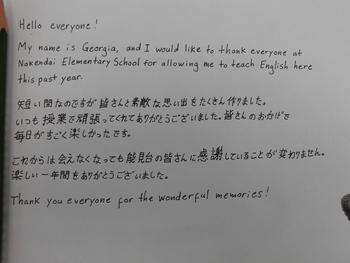 Hello everyone!
My name is Georgia, and I would like to thank everyone at
Nokendai Elementary School for allowing me to teach English here
this past year.
短い間なのですが皆さんと素敵な思い出をたくさん作りました。
いつも授業で頑張ってくれてありがとうございました。皆さんのおかげで
毎日がすごく楽しかったです。
これからは会えなくなっても能見台の皆さんに感謝していることが変わりません。
楽しい一年間をありがとうございました。
Thank you everyone for the wonderful memories!